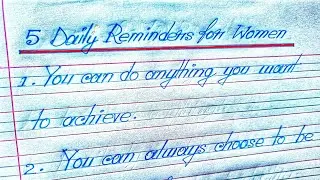 5 Daily Reminders for Women
1. You can do anything you want
to achieve.
2. You can always choose to be